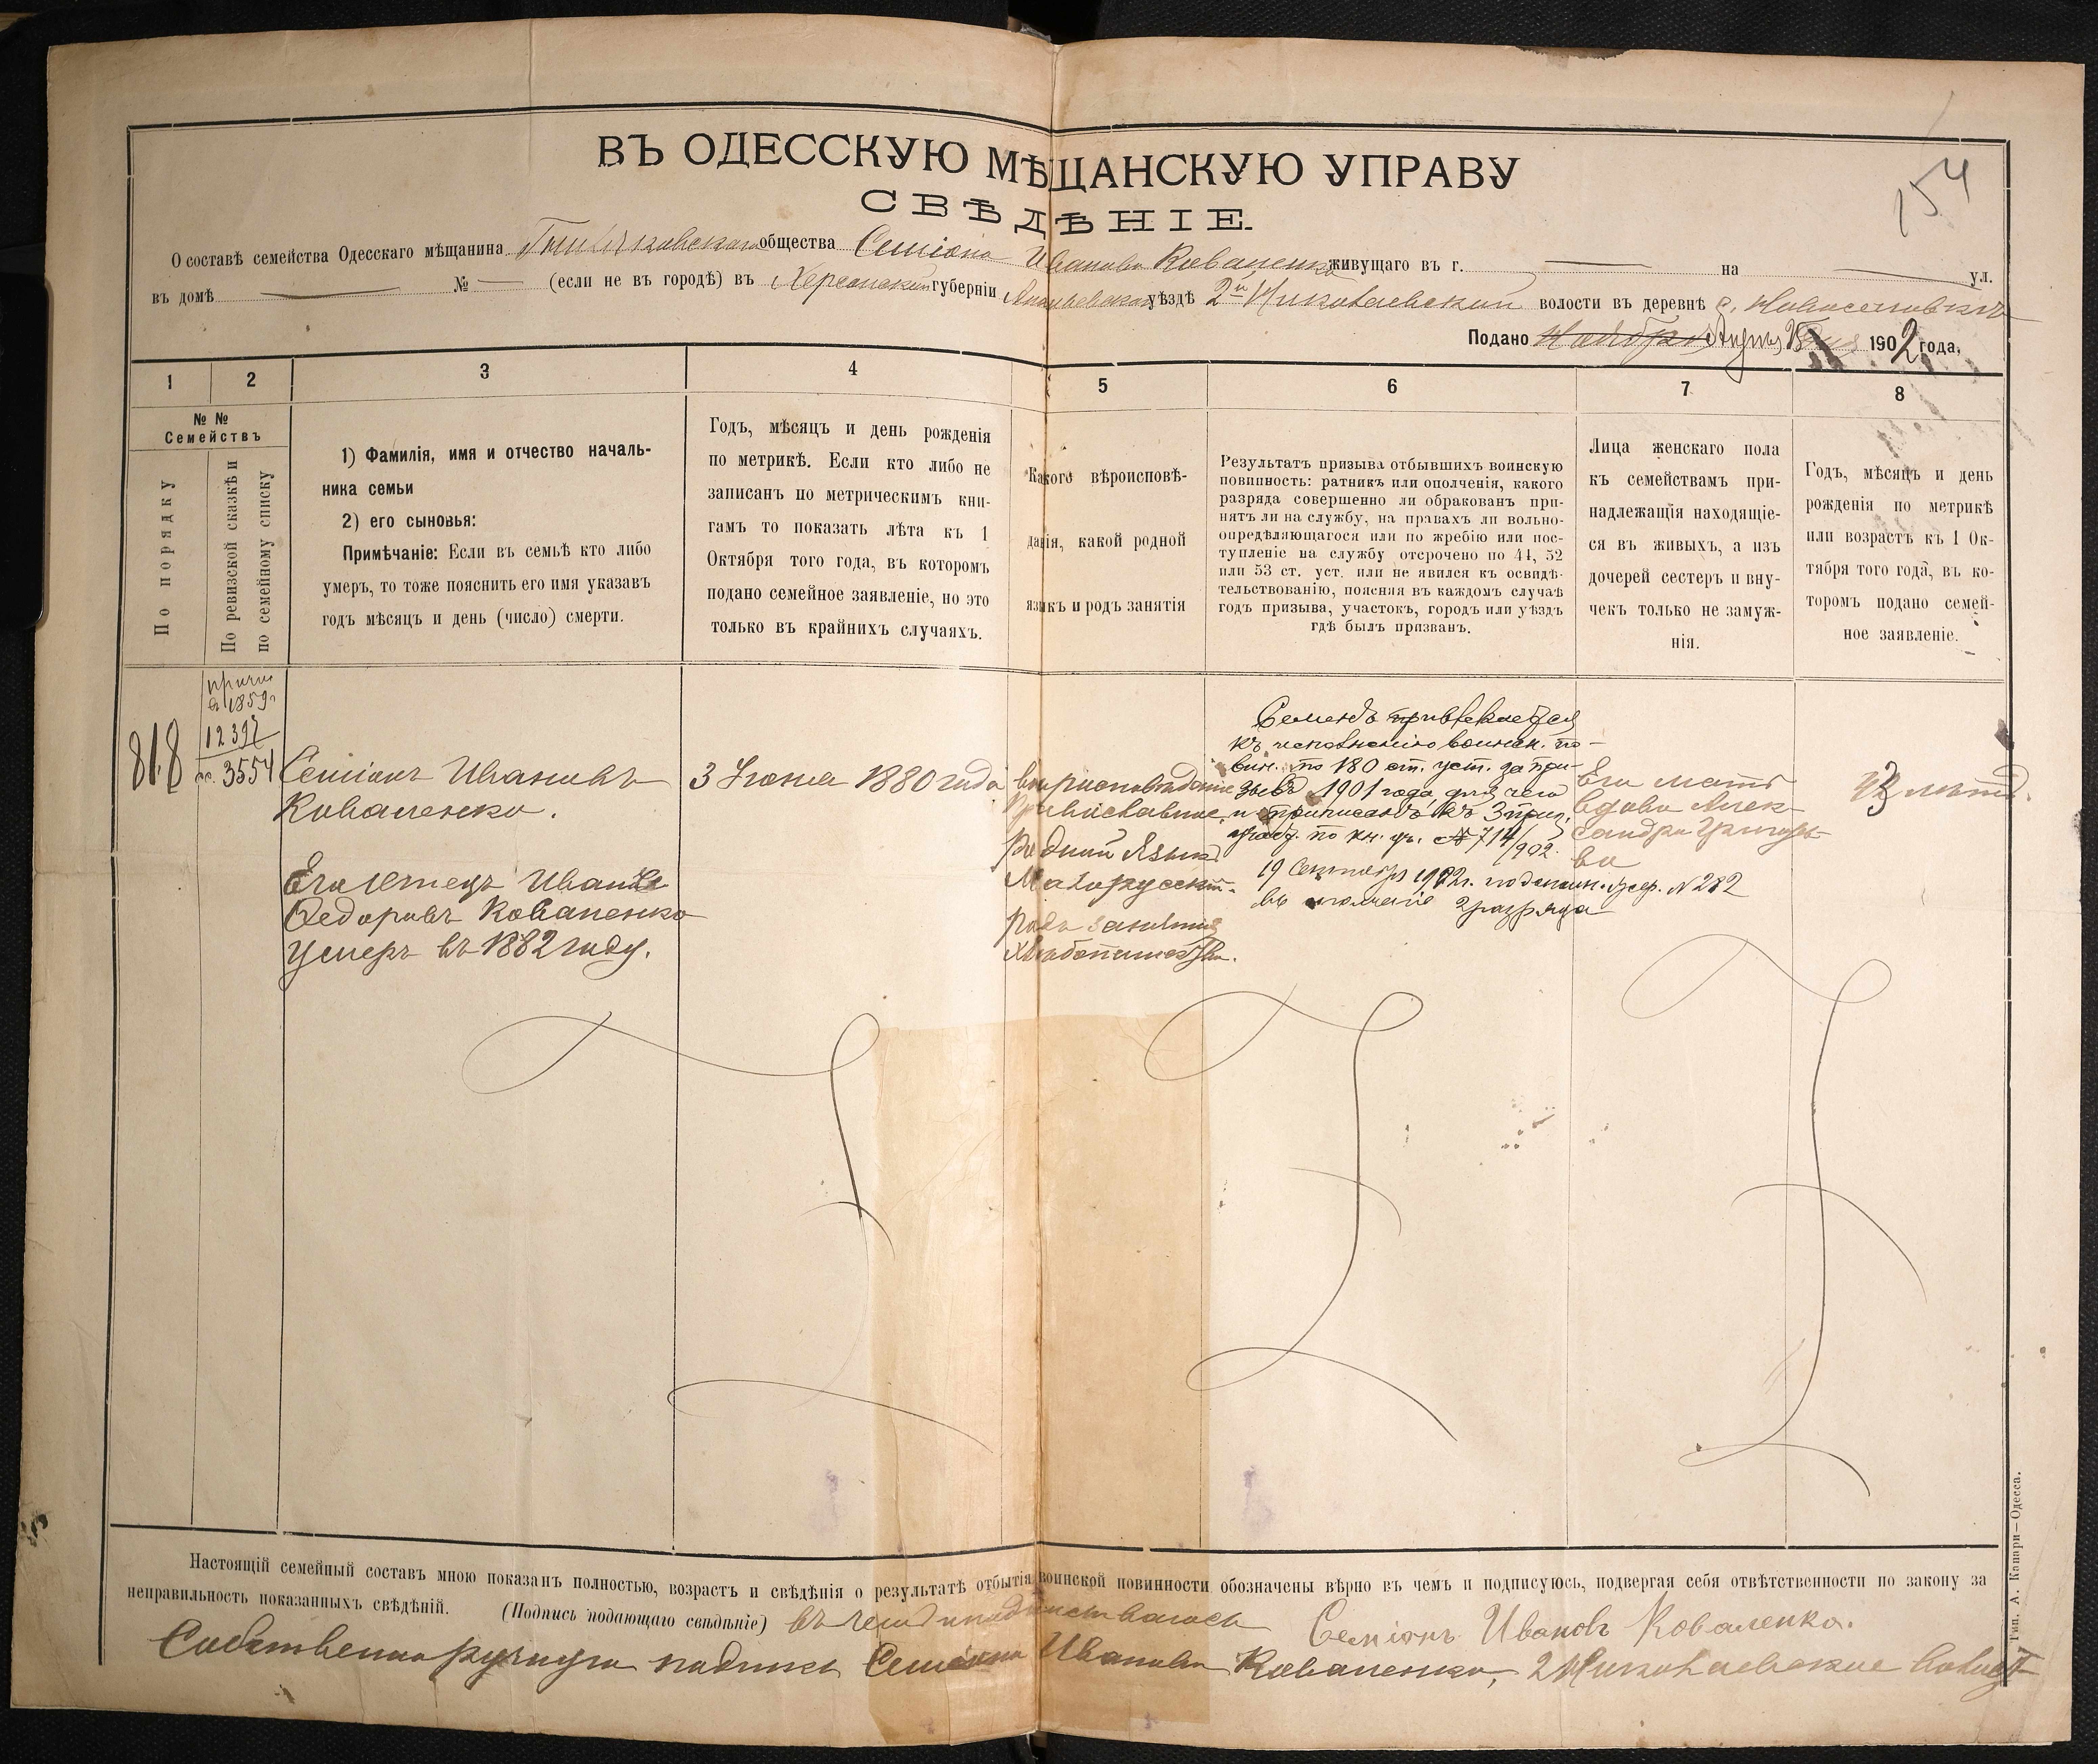 154
ВЪ ОДЕССКУЮ МѢЩАНСКУЮ УПРАВУ
СВѢДѢНІЕ.
О составѣ семейства Одесскаго мѣщанина общества Семіона Иванова Коваленко живущаго въ г. — на — ул.
въ домѣ — № — (если не въ городѣ) въ Херсонской губерніи Ананьевскаго уѣздѣ 2й Николаевской волости въ деревнѣ с. Новоселовкѣ
Подано 1902 года.
1
2
3
4
5
6
7
8
№ №
Семействъ
По порядку
По ревизской сказкѣ и
по семейному списку
1) Фамилія, имя и отчество началь-
ника семьи
2) его сыновья:
Примѣчаніе: Если въ семьѣ кто либо
умеръ, то тоже пояснить его имя указавъ
годъ мѣсяцъ и день (число) смерти.
Годъ, мѣсяцъ и день рожденія
по метрикѣ. Если кто либо не
записанъ по метрическимъ кни-
гамъ то показать лѣта къ 1
Октября того года, въ которомъ
подано семейное заявленіе, но это
только въ крайнихъ случаяхъ.
Какого вѣроисповѣ-
данія, какой родной
языкъ и родъ занятія
Результатъ призыва отбывшихъ воинскую
повинность: ратникъ или ополченія, какого
разряда совершенно ли обракованъ при-
нятъ ли на службу, на правахъ ли вольно-
опредѣляющагося или по жребію или пос-
тупленіе на службу отсрочено по 44, 52
или 53 ст. уст. или не явился къ освидѣ-
тельствованію, поясняя въ каждомъ случаѣ
годъ призыва, участокъ, городъ или уѣздъ
гдѣ былъ призванъ.
Лица женскаго пола
къ семействамъ при-
надлежащія находящіе-
ся въ живыхъ, а изъ
дочерей сестеръ и вну-
чекъ только не замуж-
нія.
Годъ, мѣсяцъ и день
рожденія по метрикѣ
или возрастъ къ 1 Ок-
тября того года, въ ко-
торомъ подано семей-
ное заявленіе.
818
в 1859г
12397
3554
Семіонъ Ивановъ
Коваленко.
Его Отецъ Иванъ
Федоровъ Коваленко
умеръ въ 1882 году.
3 Іюня 1880 года
вѣроисповѣданіе
Православное.
Родной Языкъ
Малорусскій.
Родъ занятія
Хлѣбопашество.
Семенъ привлекается
къ исполненію воинск. по-
вин. по 180 ст. уст. за при-
зывъ 1901 года, для чего
и приписанъ къ 3 приз.
участ. по кн. № 714/902.
19 Сентября 1902г. № 282
въ ополченіе 2 разряда
Его мать
вдова Алек-
сандра Григорье-
ва
лѣтъ.
Настоящій семейный составъ мною показанъ полностью, возрастъ и свѣдѣнія о результатѣ отбытія воинской повинности обозначены вѣрно въ чемъ и подписуюсь, подвергая себя отвѣтственности по закону за
неправильность показанныхъ свѣдѣній. (Подпись подающаго свѣдѣніе) въ чемъ и подписываюсь Семіонъ Ивановъ Коваленко.
Собственноручную подпись Семіона Иванова Коваленко, 2 Николаевское
Тип. А. Капари—Одесса.